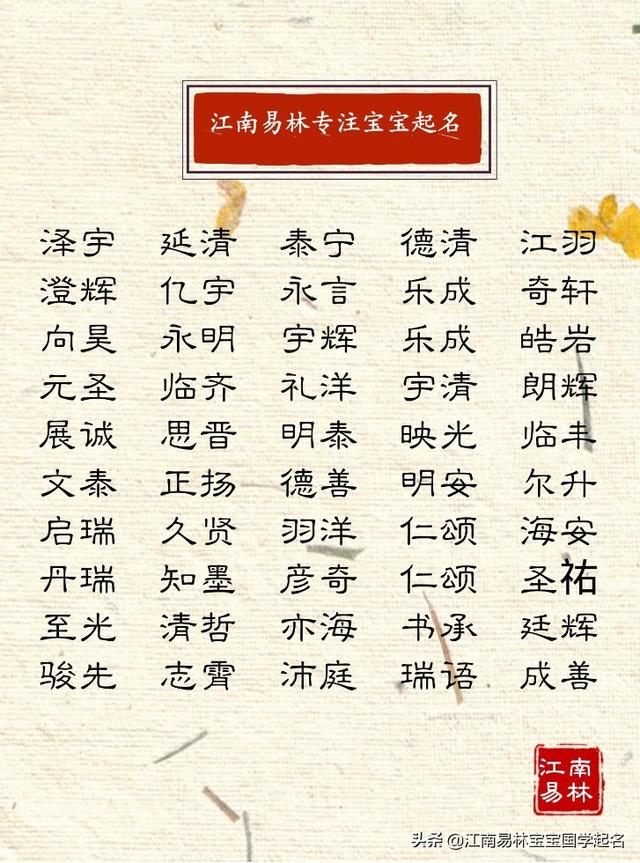 江南易林专注宝宝起名
泽宇 延清 泰宁 德清 江羽
澄辉 亿宇 永言 乐成 奇轩
向昊 永明 宇辉 乐成 皓岩
元圣 临齐 礼洋 宇清 朗辉
展诚 思晋 明泰 映光 临丰
文泰 正扬 德善 明安 尔升
启瑞 久贤 羽洋 仁颂 海安
丹瑞 知墨 彦奇 仁颂 圣祐
至光 清哲 亦海 书承 廷辉
骏先 志霄 沛庭 瑞语 成善
江南
易林
头条 @江南易林宝宝国学起名